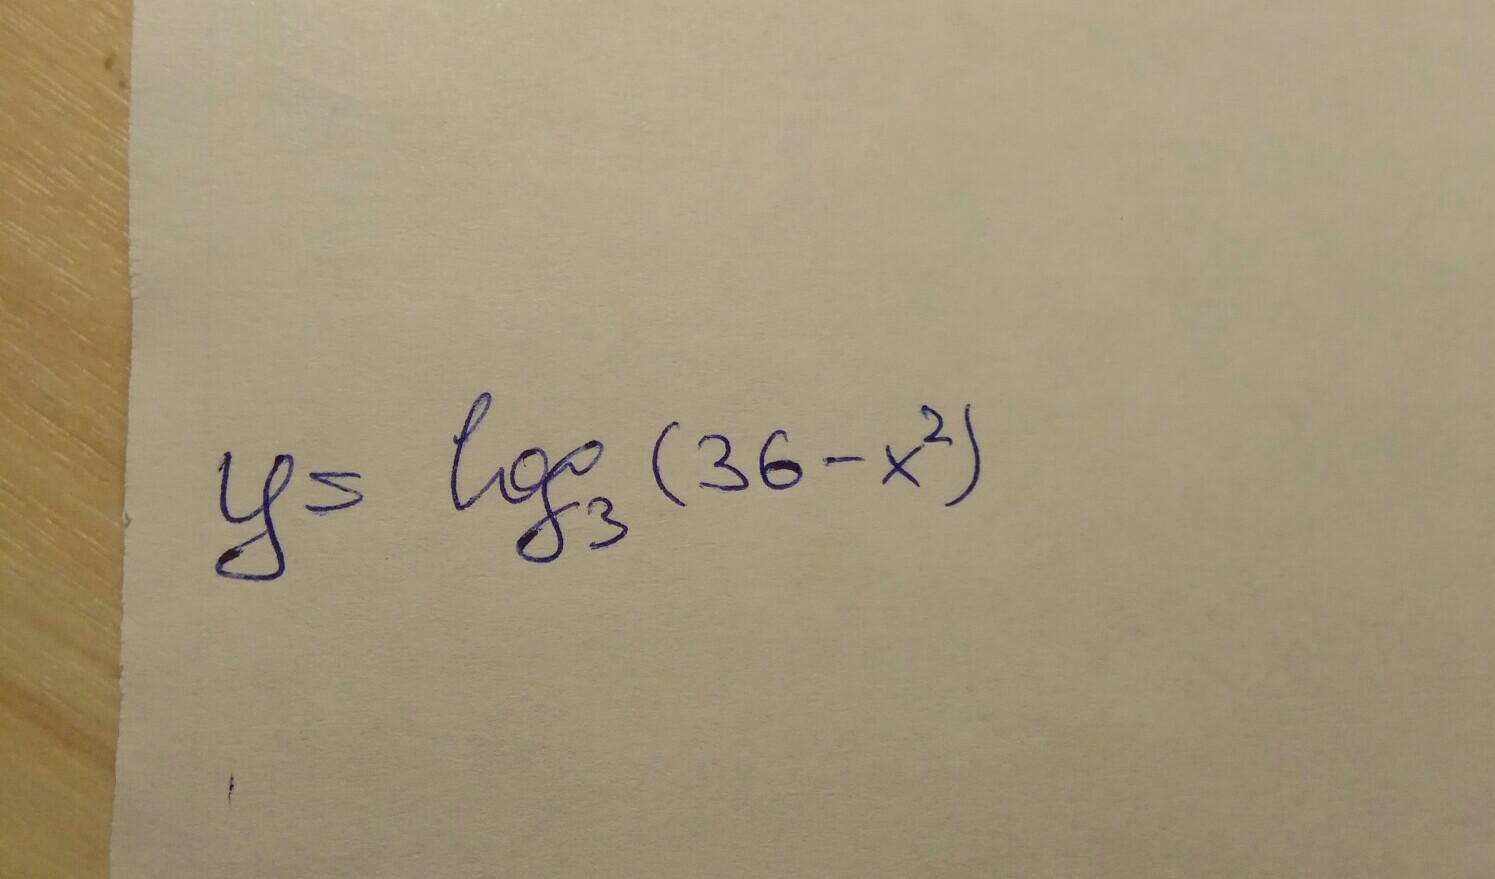 y = log₃ (36 - x²)